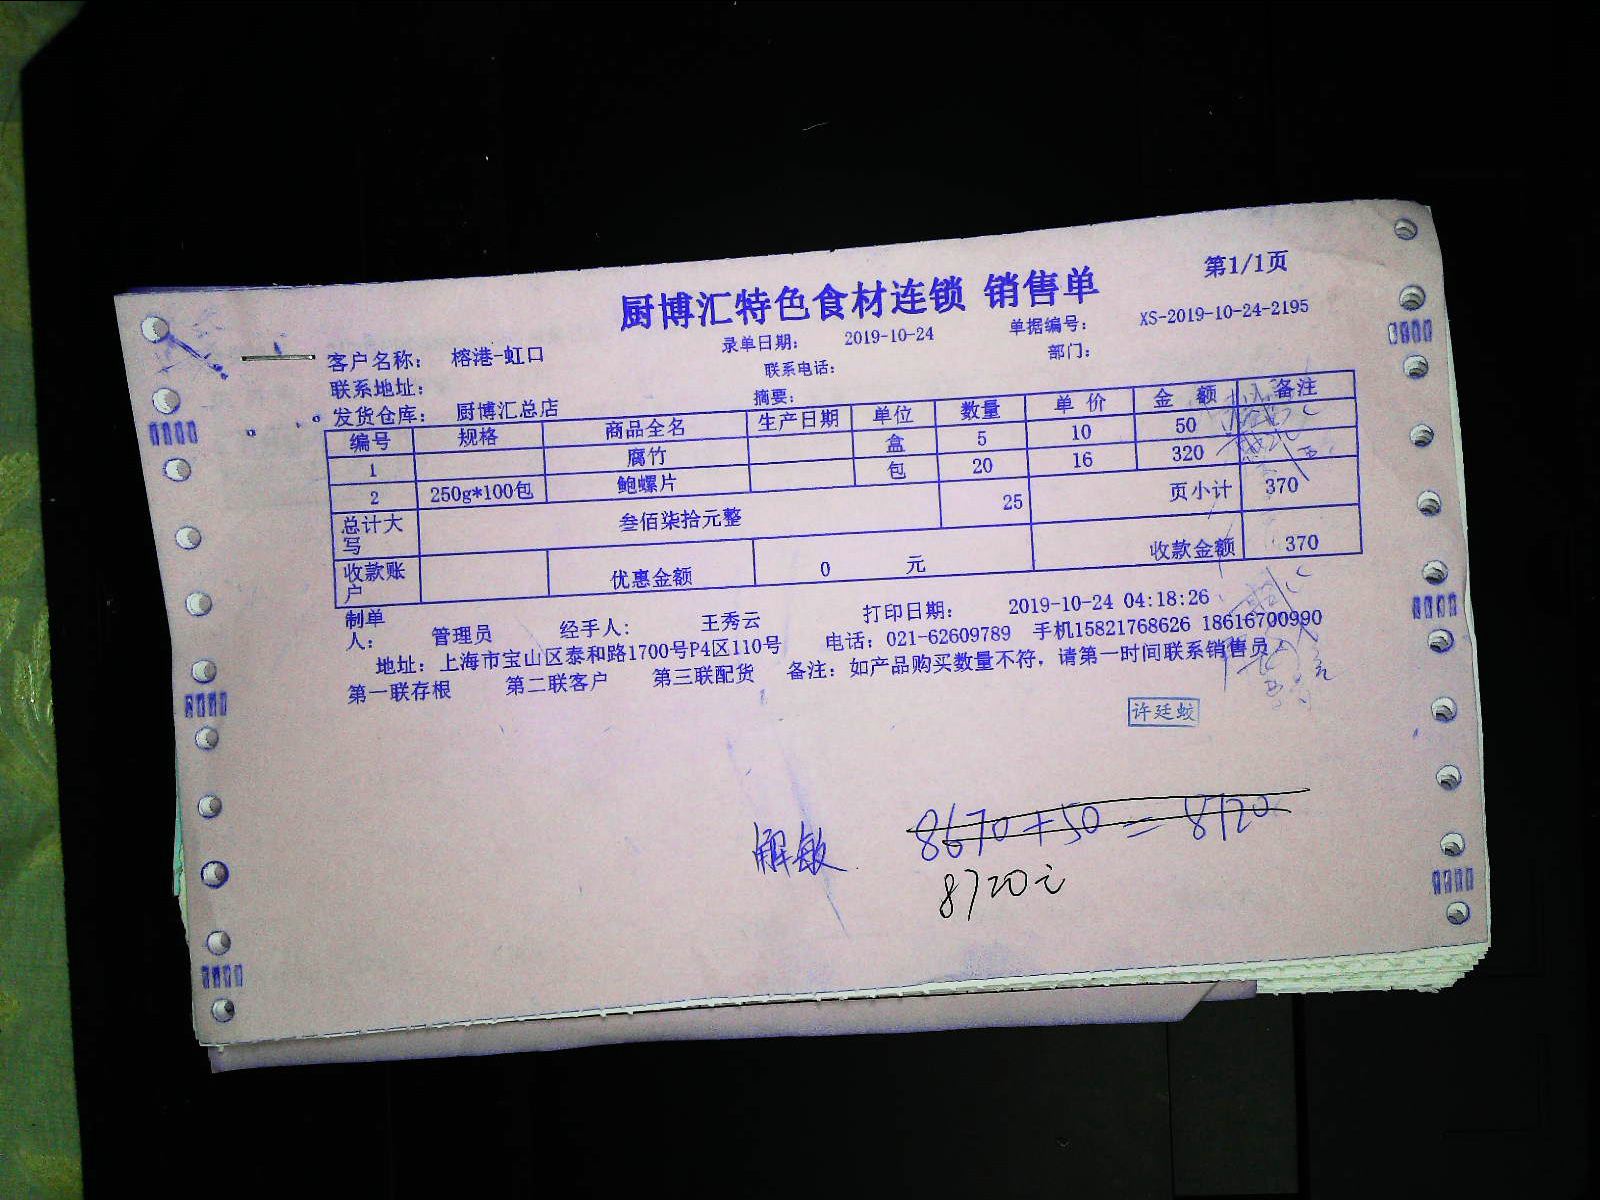 第1/1页
厨博汇特色食材连锁 销售单
录单日期： 2019-10-24 单据编号： XS-2019-10-24-2195
客户名称： 榕港-虹口 联系电话： 部门：
联系地址： 摘要：
发货仓库： 厨博汇总店
编号 规格 商品全名 生产日期 单位 数量 单 价 金 额 备注
1 腐竹 盒 5 10 50
2 250g*100包 鲍螺片 包 20 16 320
总计大写 叁佰柒拾元整 25 页小计 370
收款账户 优惠金额 0 元 收款金额 370
制单人： 管理员 经手人： 王秀云 打印日期： 2019-10-24 04:18:26
地址：上海市宝山区泰和路1700号P4区110号 电话：021-62609789 手机15821768626 18616700990
第一联存根 第二联客户 第三联配货 备注：如产品购买数量不符，请第一时间联系销售员
许廷蛟
解敏 8670+50=8120
8720元